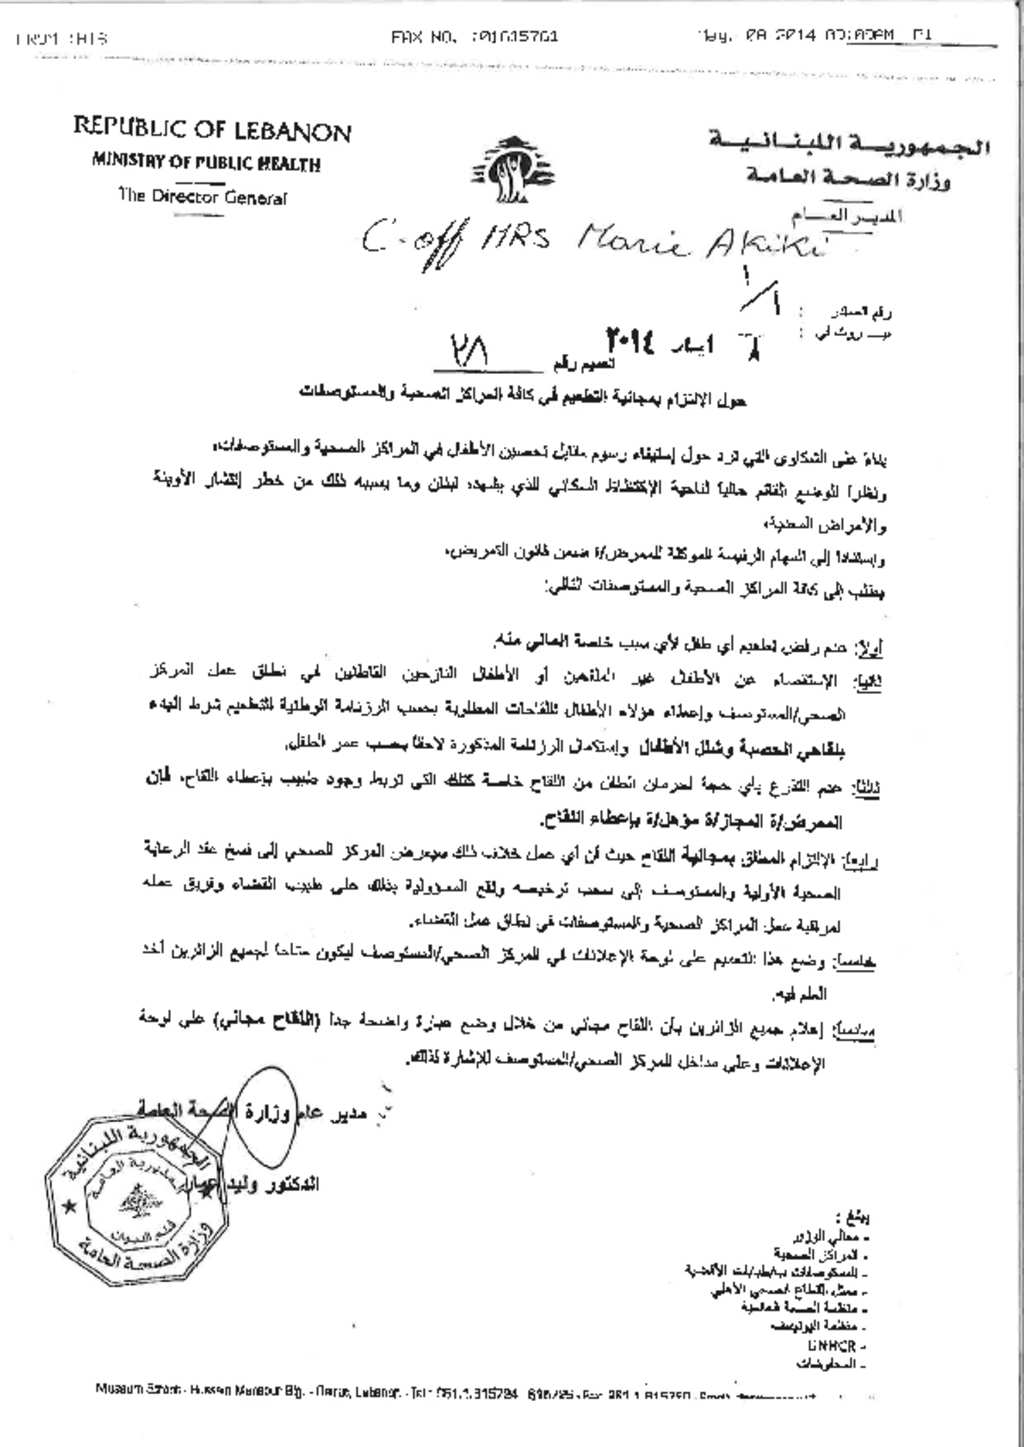 FAX NO. :01615761
May. 08 2014 P1
REPUBLIC OF LEBANON
MINISTRY OF PUBLIC HEALTH
The Director General
الجمهورية اللبنانية
وزارة الصحة العامة
المدير العام
C-off MRS Marie Akiki
رقم الصادر :
بيروت في : ٨ ايار ٢٠١٤
تعميم رقم ٢٨
حول الإلتزام بمجانية التطعيم في كافة المراكز الصحية والمستوصفات
بناءً على الشكاوى التي ترد حول إستيفاء رسوم مقابل تحصين الأطفال في المراكز الصحية والمستوصفات،
ونظراً للوضع القائم حالياً لناحية الإكتظاظ السكاني الذي يشهده لبنان وما يسببه ذلك من خطر إنتشار الأوبئة
والأمراض المعدية،
وإستناداً إلى المهام الرئيسة الموكلة للممرض/ة ضمن قانون التمريض،
يطلب إلى كافة المراكز الصحية والمستوصفات التالي:
أولاً: عدم رفض تطعيم أي طفل لأي سبب خاصة المالي منه.
ثانياً: الإستقصاء عن الأطفال غير الملقحين أو الأطفال النازحين القاطنين في نطاق عمل المركز
الصحي/المستوصف وإعطاء هؤلاء الأطفال اللقاحات المطلوبة بحسب الرزنامة الوطنية للتطعيم شرط البدء
بلقاحي الحصبة وشلل الأطفال وإستكمال الرزنامة المذكورة لاحقاً بحسب عمر الطفل.
ثالثاً: عدم التذرع بأي حجة لحرمان الطفل من اللقاح خاصة كتلك التي تربط وجود طبيب بإعطاء اللقاح، فإن
الممرض/ة المجاز/ة مؤهل/ة بإعطاء اللقاح.
رابعاً: الإلتزام المطلق بمجانية اللقاح حيث أن أي عمل خلاف ذلك سيعرض المركز الصحي إلى فسخ عقد الرعاية
الصحية الأولية والمستوصف إلى سحب ترخيصه وتقع المسؤولية بذلك على طبيب القضاء وفريق عمله
لمراقبة عمل المراكز الصحية والمستوصفات في نطاق عمل القضاء.
خامساً: وضع هذا التعميم على لوحة الإعلانات في المركز الصحي/المستوصف ليكون متاحاً لجميع الزائرين أخذ
العلم فيه.
سادساً: إعلام جميع الزائرين بأن اللقاح مجاني من خلال وضع عبارة واضحة جداً (اللقاح مجاني) على لوحة
الإعلانات وعلى مداخل المركز الصحي/المستوصف للإشارة لذلك.
مدير عام وزارة الصحة العامة
الدكتور وليد عمار
الجمهورية اللبنانية
المديرية العامة
قلم الديوان
وزارة الصحة العامة
يبلغ :
- معالي الوزير
- المراكز الصحية
- المستوصفات الأقضية
- ممثل القطاع الصحي الأهلي
- منظمة الصحة العالمية
- منظمة اليونيسف
- UNHCR
- المحفوظات
Museum Street - Hussein Mansour Blg. - Beirut, Lebanon. - Tel :